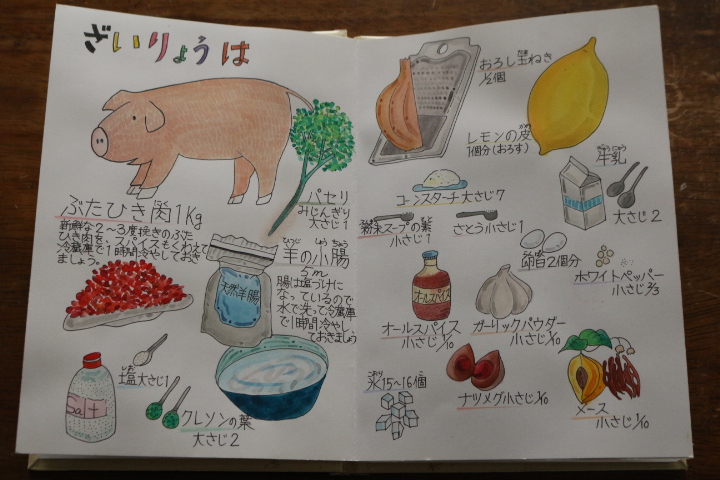 ざいりょうは
ぶたひき肉1Kg
新鮮な2~3度挽きのぶた
ひき肉を、スパイスもくわえて
冷蔵庫で1時間冷やしておき
ましょう。
パセリ
みじんぎり
大さじ1
ひつじ しょうちょう
羊の小腸
5m
腸は塩づけに
なっているので
水で洗って冷蔵庫
で1時間冷やし
ておきましょう
天然羊腸
塩大さじ1
Salt
クレソンの葉
大さじ2
おろし玉ねき
1/2個
レモンの皮
1個分(おろす)
コーンスターチ 大さじ7
牛乳
大さじ2
粉末スープの素
小さじ1
さとう小さじ1
卵白2個分
ホワイトペッパー
小さじ2/3
オールスパイス
オールスパイス
小さじ1/10
ガーリックパウダー
小さじ1/10
氷15~16個
ナツメグ小さじ1/10
メース
小さじ1/10